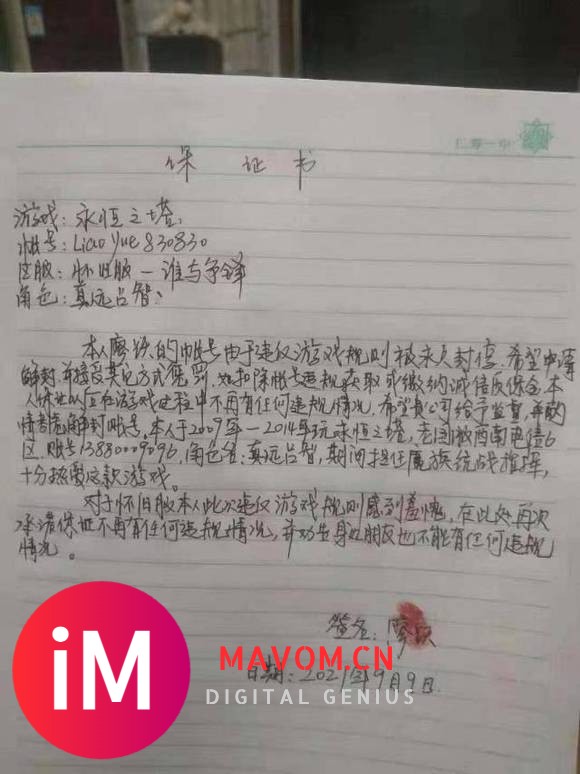 仁寿一中
保证书
游戏：永恒之塔.
帐号：Liao yue 830830
区服：怀旧服－谁与争锋
角色：真远吕智.
本人廖 的帐号由于违反游戏规则被永久封停.希望申请
解封.并接受其它方式惩罚.如扣除帐号违规获取或缴纳诚信保金.本
人保证以后在游戏过程中不再有任何违规情况，希望贵公司给予监督，并酌
情考虑解封帐号.本人于2009年－2014年玩永恒之塔，老国服西南电信6
区.账号13880009096，角色名：真远吕智，期间担任魔族统战指挥，
十分热爱这款游戏。
对于怀旧服本人此次违反游戏规则感到羞愧，在此处再次
承诺保证不再有任何违规情况，并劝告身边朋友也不能有任何违规
情况。
签名：廖
日期：2021年9月9日.
iM
MAVOM.CN
DIGITAL GENIUS